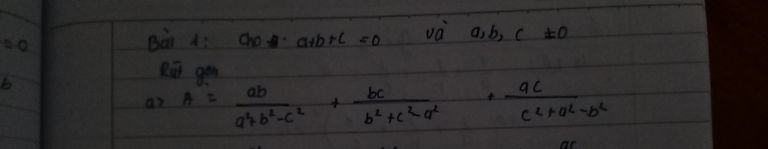 =0
b
Bài 1: Cho a+b+c=0 và a,b,c ≠0
Rút gọn
a> A = ab/(a²+b²-c²) + bc/(b²+c²-a²) + ac/(c²+a²-b²)
ac